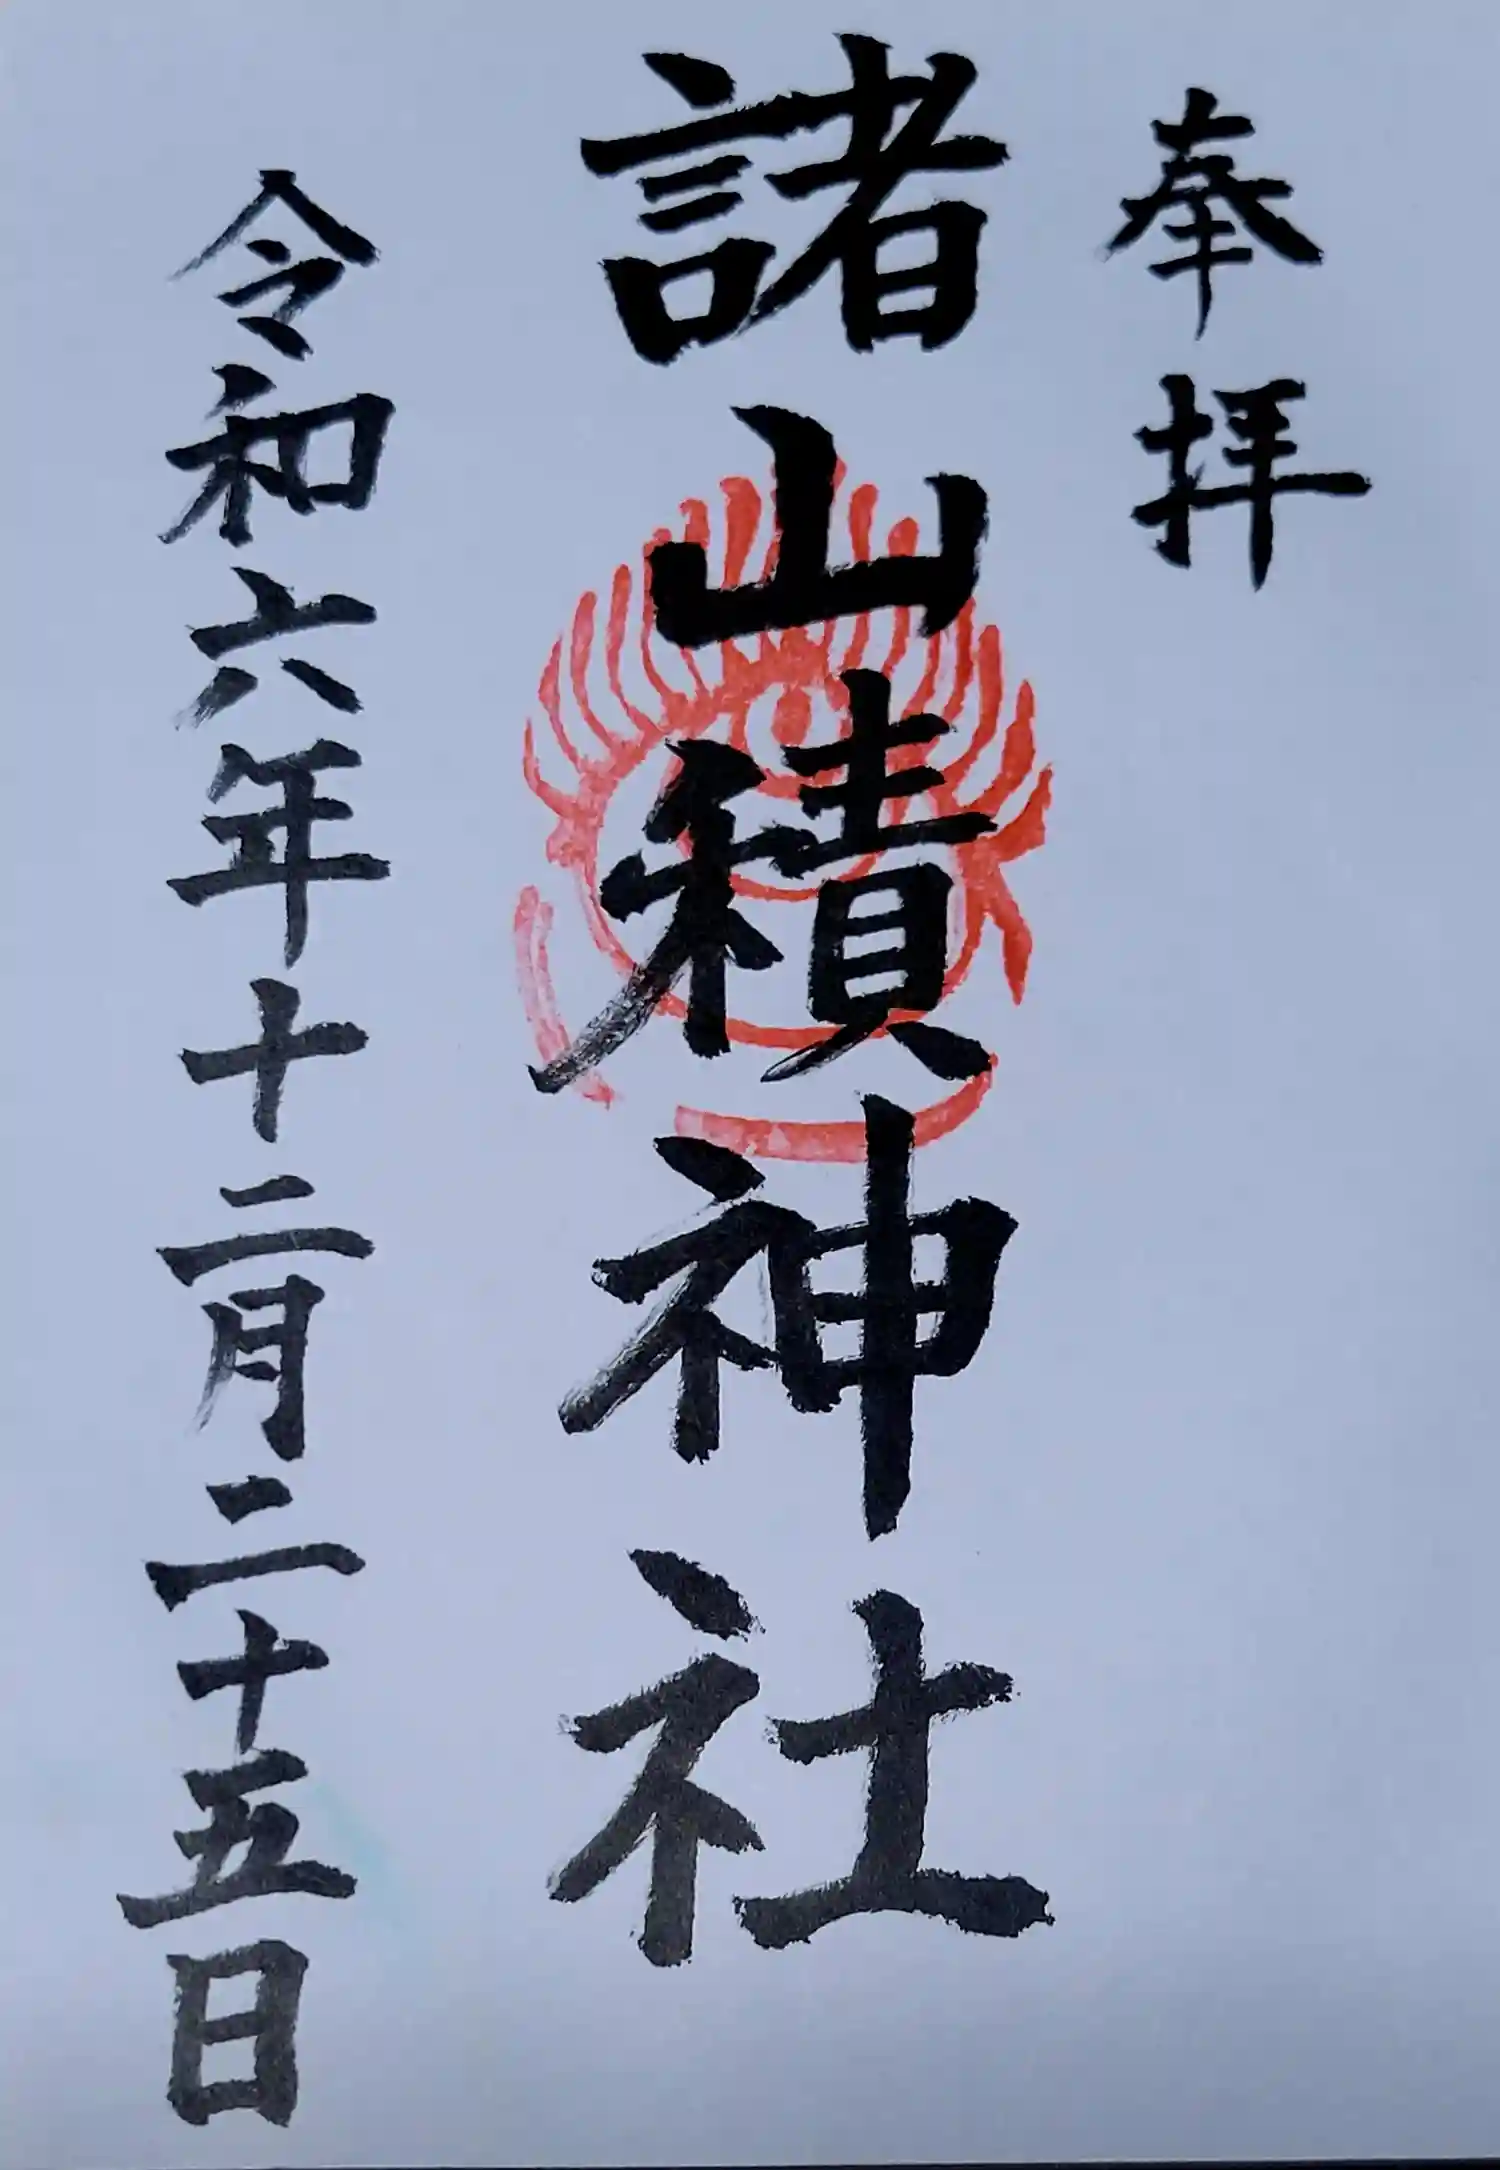 奉拝
諸山積神社
令和六年十二月二十五日